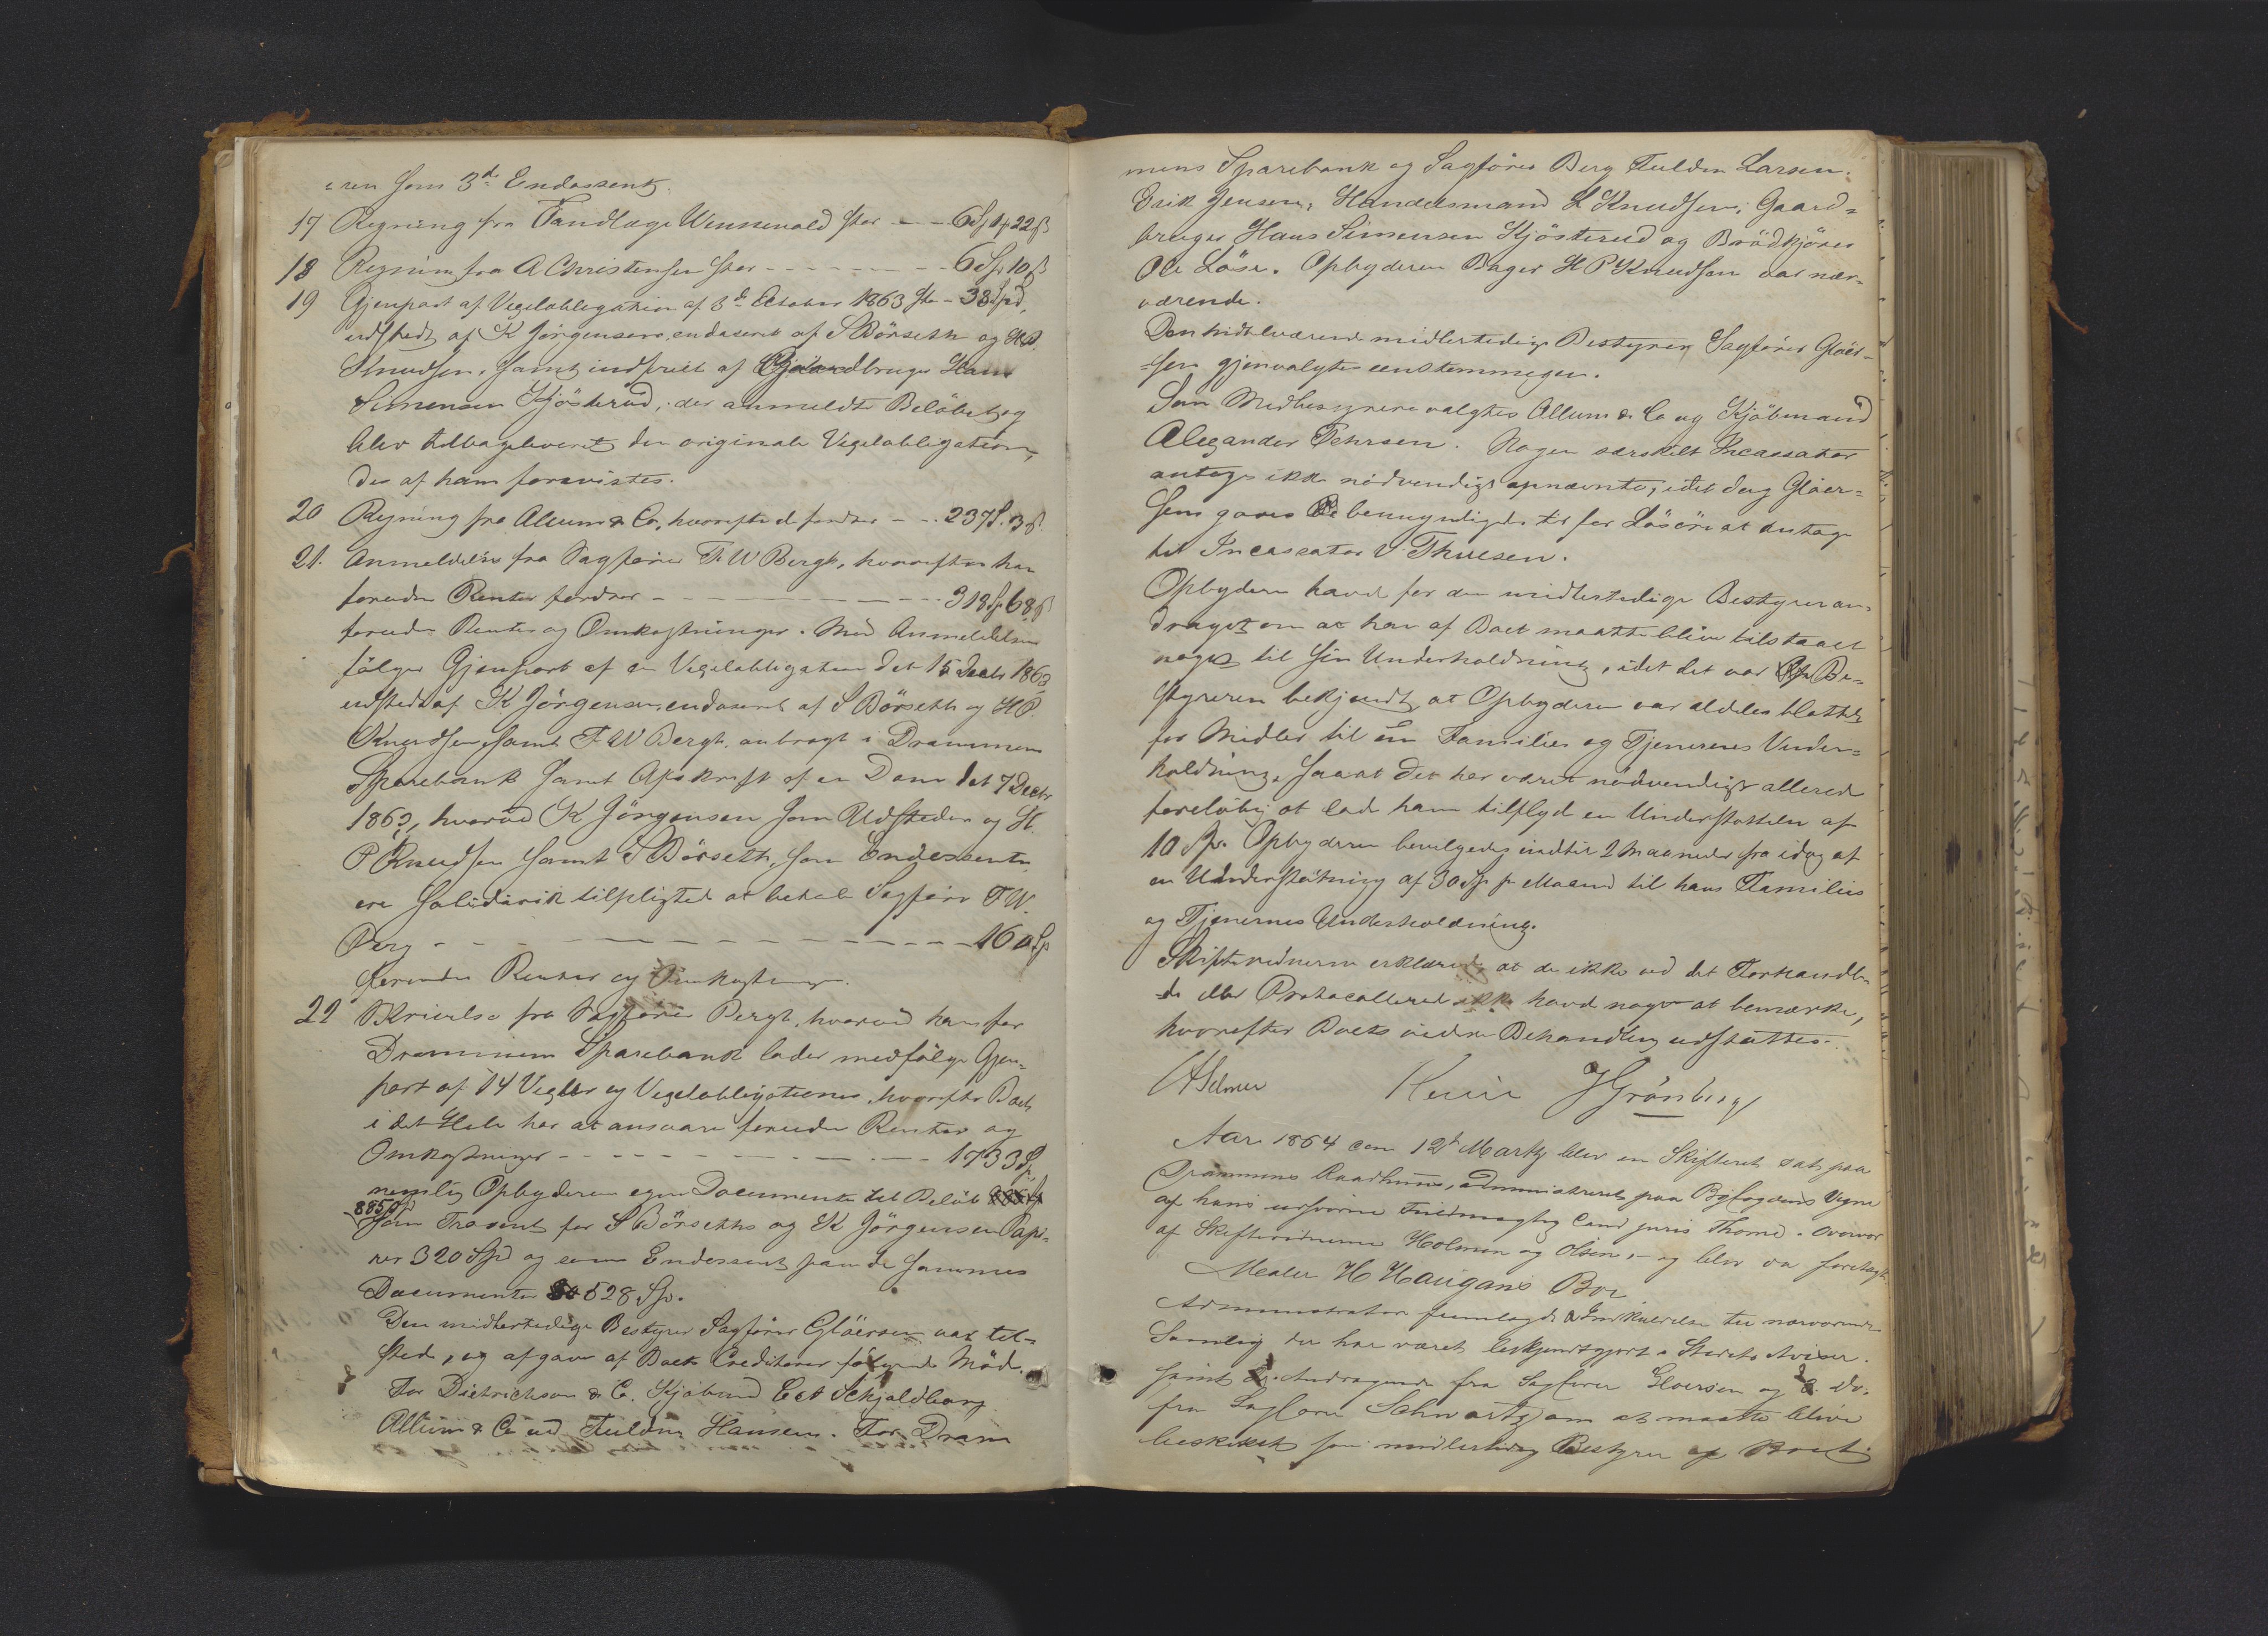 eren som 3de Endossent.
17 Regning fra Tandlæge Wennevald stor - - 6 Sp 1 # 22 ß
18 Regning fra A Christensen stor - - - - - - 6 Sp 10 ß
19 Gjenpart af Vexelobligation af 3d October 1863 stor - 38 Spd,
udstedt af K Jörgensen, endoseret af S Börseth og H.P.
Knudsen, samt indfriet af Gaardbruger Hans
Simensen Kjösterud, der anmeldte Belöbet og
blev tilbageleveret den originale Vexelobligation,
der af ham forevistes.
20 Regning fra Allum & Co, hvorefter de fordrer - - 237 S. 3 ß.
21. Anmeldelse fra Sagförer F. W Bergh, hvorefter han
foruden Renter fordrer - - - - - - - 318 Sp 68 ß
foruden Renter og Omkostninger. Med Anmeldelsen
fölger Gjenpart af en Vexelobligation dat 15 Decbr 1862
udstedt af K Jörgensen, endoseret af S Börseth og H P.
Knudsen, samt F W Bergh, anbragt i Drammens
Sparebank samt Afskrift af en Dom dat 7 Decbr
1863, hvorved K Jörgensen som Udsteder og H.
P Knudsen samt S Börseth, som Endossenter
ere solidarisk tilpligtet at betale Sagförer F W.
Berg - - - - - - - - - - - - - 160 Sp
foruden Renter og Omkostninger.
22 Skrivelse fra Sagförer Bergh, hvorved han for
Drammens Sparebank lader medfölge Gjen=
part af 14 Vexler og Vexelobligationer, hvorefter Boet
i det Hele har at ansvare foruden Renter og
Omkostninger - - - - - - - - 1733 Sp,
nemlig Opbyderens egne Documenter til Beløb
885 Sp
som Trasent for S Börseths og K Jörgensens Papi=
rer 320 Spd og som Endossent paa de sammes
Documenter 528 Sp.
Den midlertidige Bestyrer Sagförer Glöersen var til=
stede, og afgave af Boets Creditorer fölgende Möde.
For Dietrichson & Co. Kjöbmd Schjoldborg
Allum & Co ved Fuldm Hansen. For Dram
mens Sparebank og Sagförer Berg Fuldm Larsen.
Erik Jensen, Handelsmand L Knudsen, Gaard=
bruger Hans Simensen Kjösterud og Brödkjörer
Ole Löse. Opbyderen Bager H P Knudsen var nær=
værende.
Den hidtilværende midlertidige Bestyrer, Sagförer Glöer=
sen gjenvalgtes eenstemmigen.
Som Medbestyrere valgtes Allum & Co og Kjöbmand
Alexander Pehrsen. Nogen særskilt Incassator
antoges ikke nödvendigt opnævnte, idet dog Glöer=
sen gaves bemyndigelse til for Lösöre at antage
til Incassator V Thuesen.
Opbyderen havde for den midlertidige Bestyrer an=
draget om at han af Boet maatte blive tilstaaet
noget til sin Underholdning, idet det var Be=
styreren bekjendt, at Opbyderen var aldeles blottet
for Midler til sin Families og Tjeneres Under=
holdning, saaat det har været nödvendigt allerede
forelöbig at lade ham tilflyde en Understöttelse af
10 Sp. Opbyderen bevilgedes indtil 2 Maaneder fra idag af
en Understötning af 30 Sp pr Maaned til hans Families
og Tjeneres Underholdning.
Skifteretnerne erklærede at de ikke ved det Forhandle
de eller Protocollerede ikke havde noget at bemærke,
hvorefter Boets videre Behandling udsattes.
Selmer J Grönberg
Aar 1864 den 12te Marts blev en Skifteret sat paa
Drammens Raadhuus, administreret paa Byfogdens Vegne
af hans edsvorne Fuldmægtig Cand juris Thomé. Overvær
af Skifteretnerne Holmen og Olsen, - og blev da foretaget
Mealer H Haugans Boe
Administrator fremlagde Indkaldelse til nærværende
Samling der har været bekjendtgjort i Stedets Aviser.
samt Andragende fra Sagförer Gloersen og do.
fra Sagförer Schwartz om at maatte blive
beskikket som midlertidig Bestyrer af Boet.